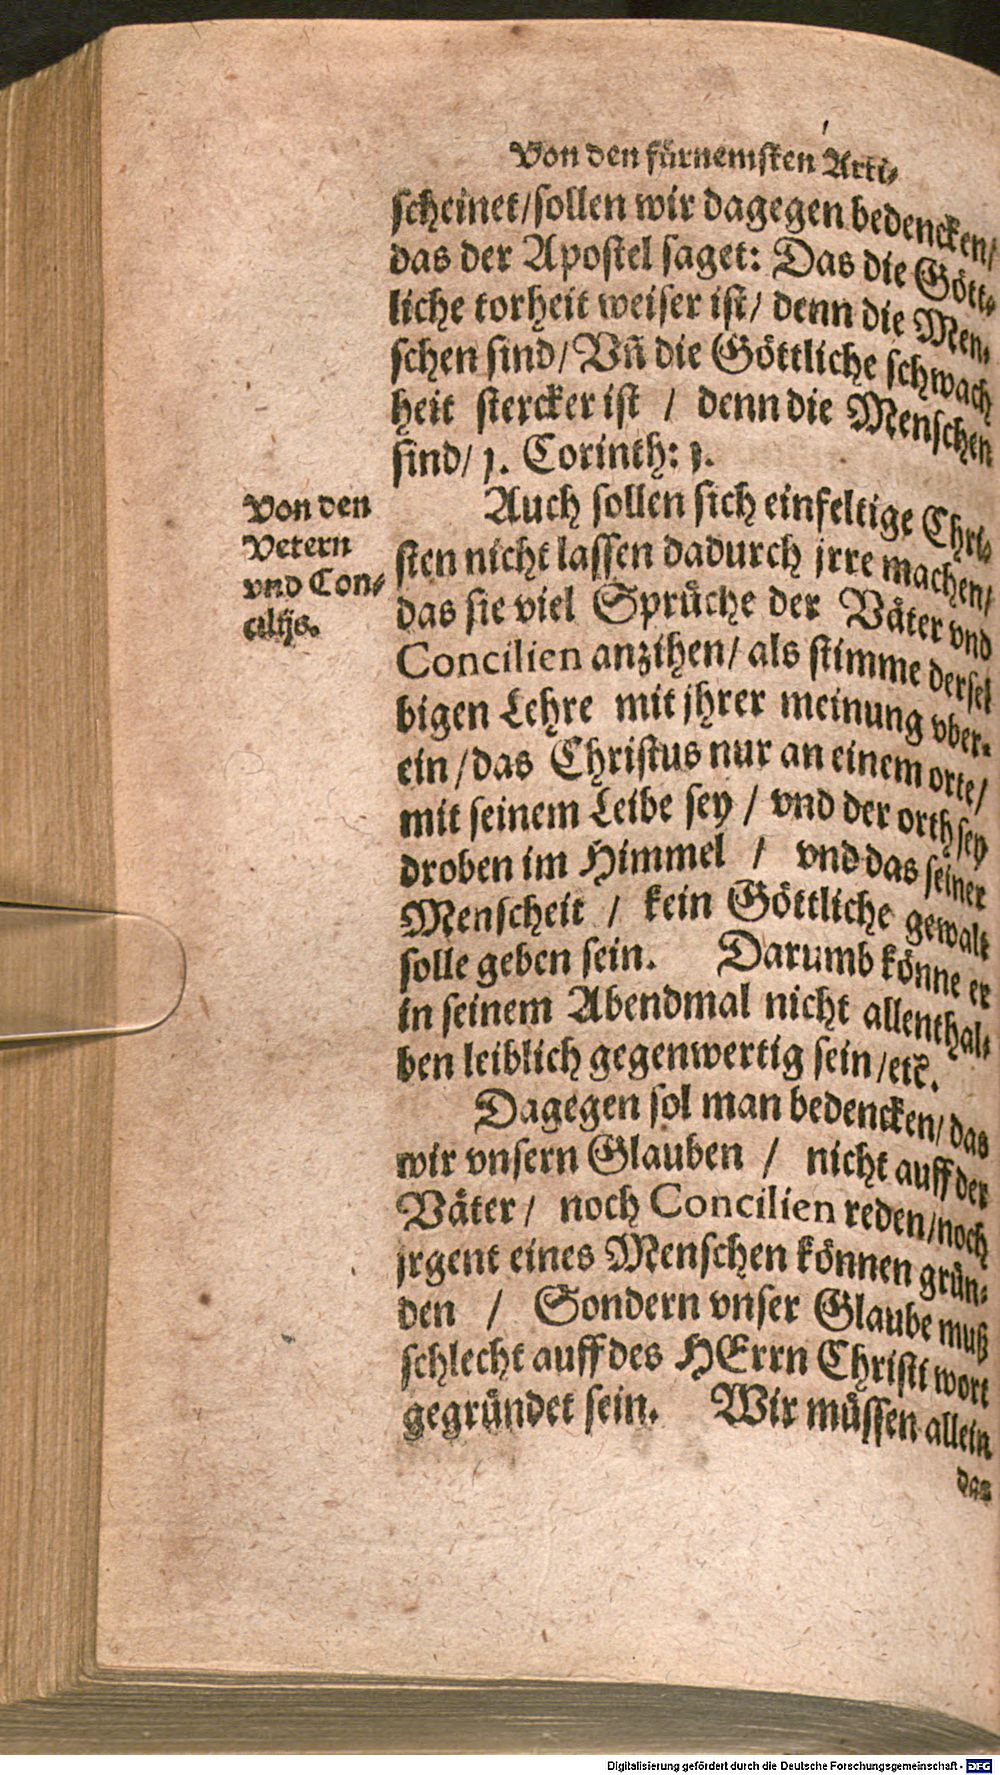 Von den fürnemsten Arti-
scheinet/sollen wir dagegen bedencken/
das der Apostel saget: Das die Gött-
liche torheit weiser ist/ denn die Men-
schen sind/ Vñ die Göttliche schwach
heit stercker ist / denn die Menschen
sind/ 1. Corinth: 1.
Von den
Vetern
vnd Con-
cilijs.
Auch sollen sich einfeltige Chri-
sten nicht lassen dadurch jrre machen/
das sie viel Sprüche der Väter vnd
Concilien anzihen/ als stimme dersel
bigen Lehre mit jhrer meinung vber-
ein/das Christus nur an einem orte/
mit seinem Leibe sey / vnd der orth sey
droben im Himmel / vnd das seiner
Menscheit / kein Göttliche gewalt
solle geben sein. Darumb könne er
in seinem Abendmal nicht allenthal-
ben leiblich gegenwertig sein/etc̃.
Dagegen sol man bedencken/das
wir vnsern Glauben / nicht auff der
Väter/ noch Concilien reden/noch
jrgent eines Menschen können grün-
den / Sondern vnser Glaube muß
schlecht auff des HErrn Christi wort
gegründet sein. Wir müssen allein
das
Digitalisierung gefördert durch die Deutsche Forschungsgemeinschaft - DFG